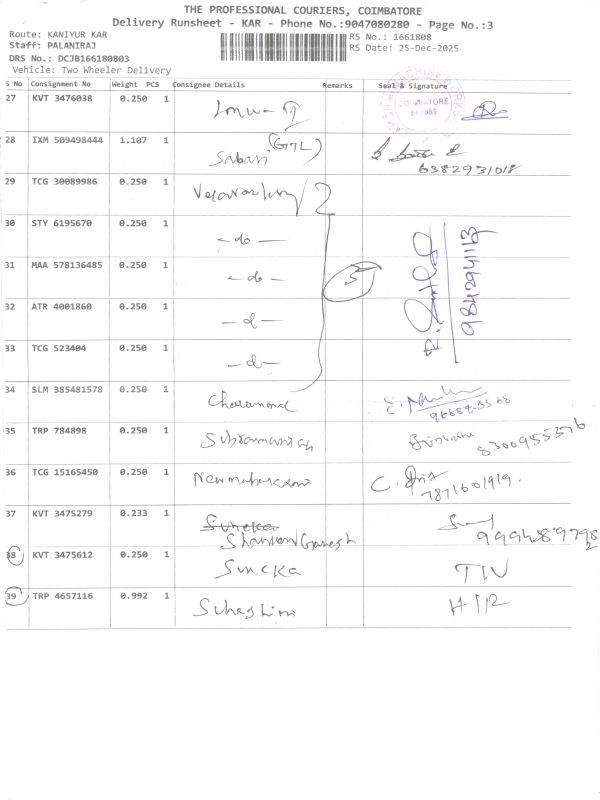 THE PROFESSIONAL COURIERS, COIMBATORE
Delivery Runsheet - KAR - Phone No.:9047080280 - Page No.:3
Route: KANIYUR KAR
RS No.: 1661808
Staff: PALANIRAJ
RS Date: 25-Dec-2025
DRS No.: DCJB166180803
Vehicle: Two Wheeler Delivery
S No Consignment No Weight PCS Consignee Details Remarks Seal & Signature
27 KVT 3476038 0.250 1
COIMBATORE
28 IXM 509498444 1.107 1 Sabari (GTL)
6382931018
29 TCG 30089986 0.250 1
30 STY 6195670 0.250 1 -do-
31 MAA 578136485 0.250 1 -do- 5
984294113
32 ATR 4001860 0.250 1 -d-
33 TCG 523404 0.250 1 -d-
34 SLM 385481578 0.250 1
35 TRP 784898 0.250 1
8300955376
36 TCG 15165450 0.250 1
7871601919.
37 KVT 3475279 0.233 1 Sineka
Shankar Ganesh
9994897982
38 KVT 3475612 0.250 1 Sineka
39 TRP 4657116 0.992 1